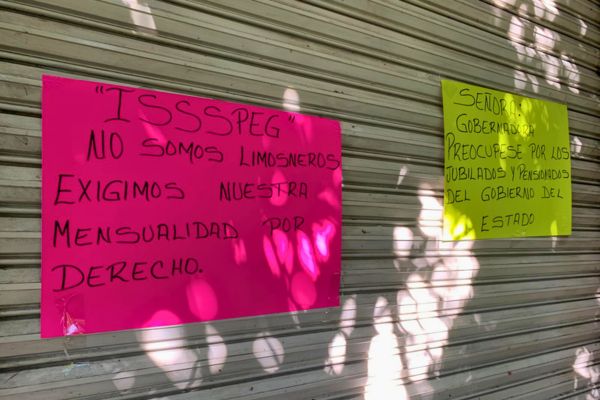 "ISSSPEG"
NO SOMOS LIMOSNEROS
EXIGIMOS NUESTRA
MENSUALIDAD POR
DERECHO.
SEÑORA:
GOBERNADORA
PREOCUPESE POR LOS
JUBILADOS Y PENSIONADOS
DEL GOBIERNO DEL
ESTADO